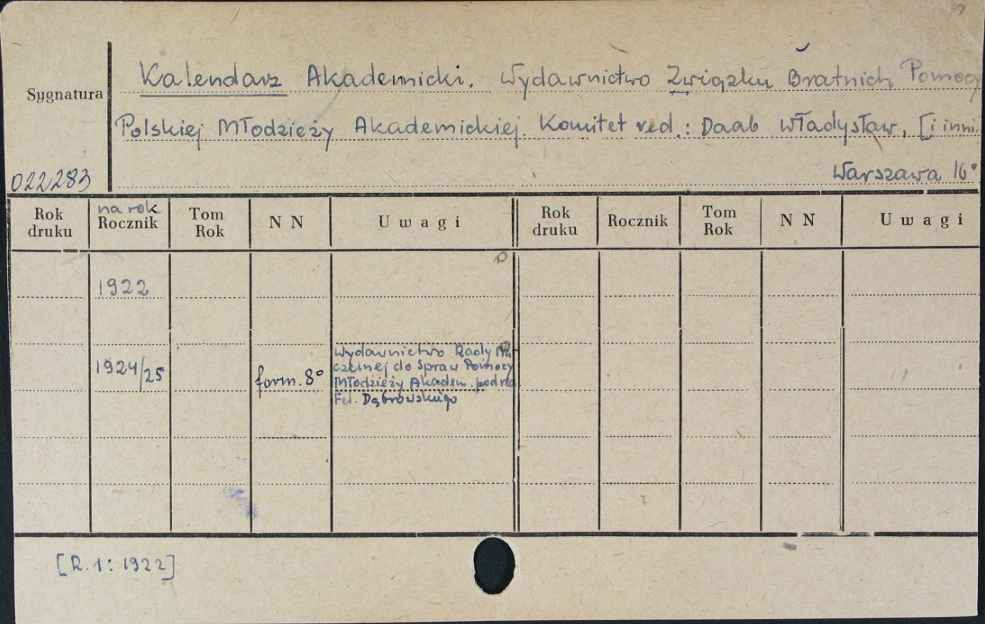 Kalendarz Akademicki. Wydawnictwo Związku Bratnich Pomocy
Sygnatura
Polskiej Młodzieży Akademickiej. Komitet red.: Daab Władysław, [i inni.
022283
Warszawa 16°
Rok druku
na rok
Rocznik
Tom Rok
N N
Uwagi
Rok druku
Rocznik
Tom Rok
N N
Uwagi
1922
1924/25
form. 8°
Wydawnictwo Rady Na-
czelnej do Spraw Pomocy
Młodzieży Akadem. pod red.
Fel. Dąbrowskiego
[R. 1: 1922]